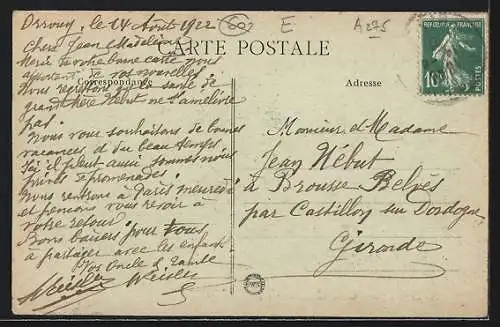 Orrouy, le 14 Août 1922
60
E
A 275
Chers Jean Madeleine
CARTE POSTALE
Merci de votre bonne carte nous
apportant de vos nouvelles.
Correspondance
Adresse
Nous regrettons que la santé de
grand'mère Hébut ne s'améliore
pas.
Nous vous souhaitons de bonnes
vacances et du beau temps.
Ici il pleut aussi sommes nous
privés de promenades.
Nous rentrons à Paris mercredi
et pensons vous revoir à
votre retour.
Bons baisers pour tous
à partager avec les enfants
Vos Oncle & Tante
REPUBLIQUE FRANÇAISE
10
POSTES
Monsieur et Madame
Jean Hébut
à Brousse Belvès
par Castillon sur Dordogne
Gironde